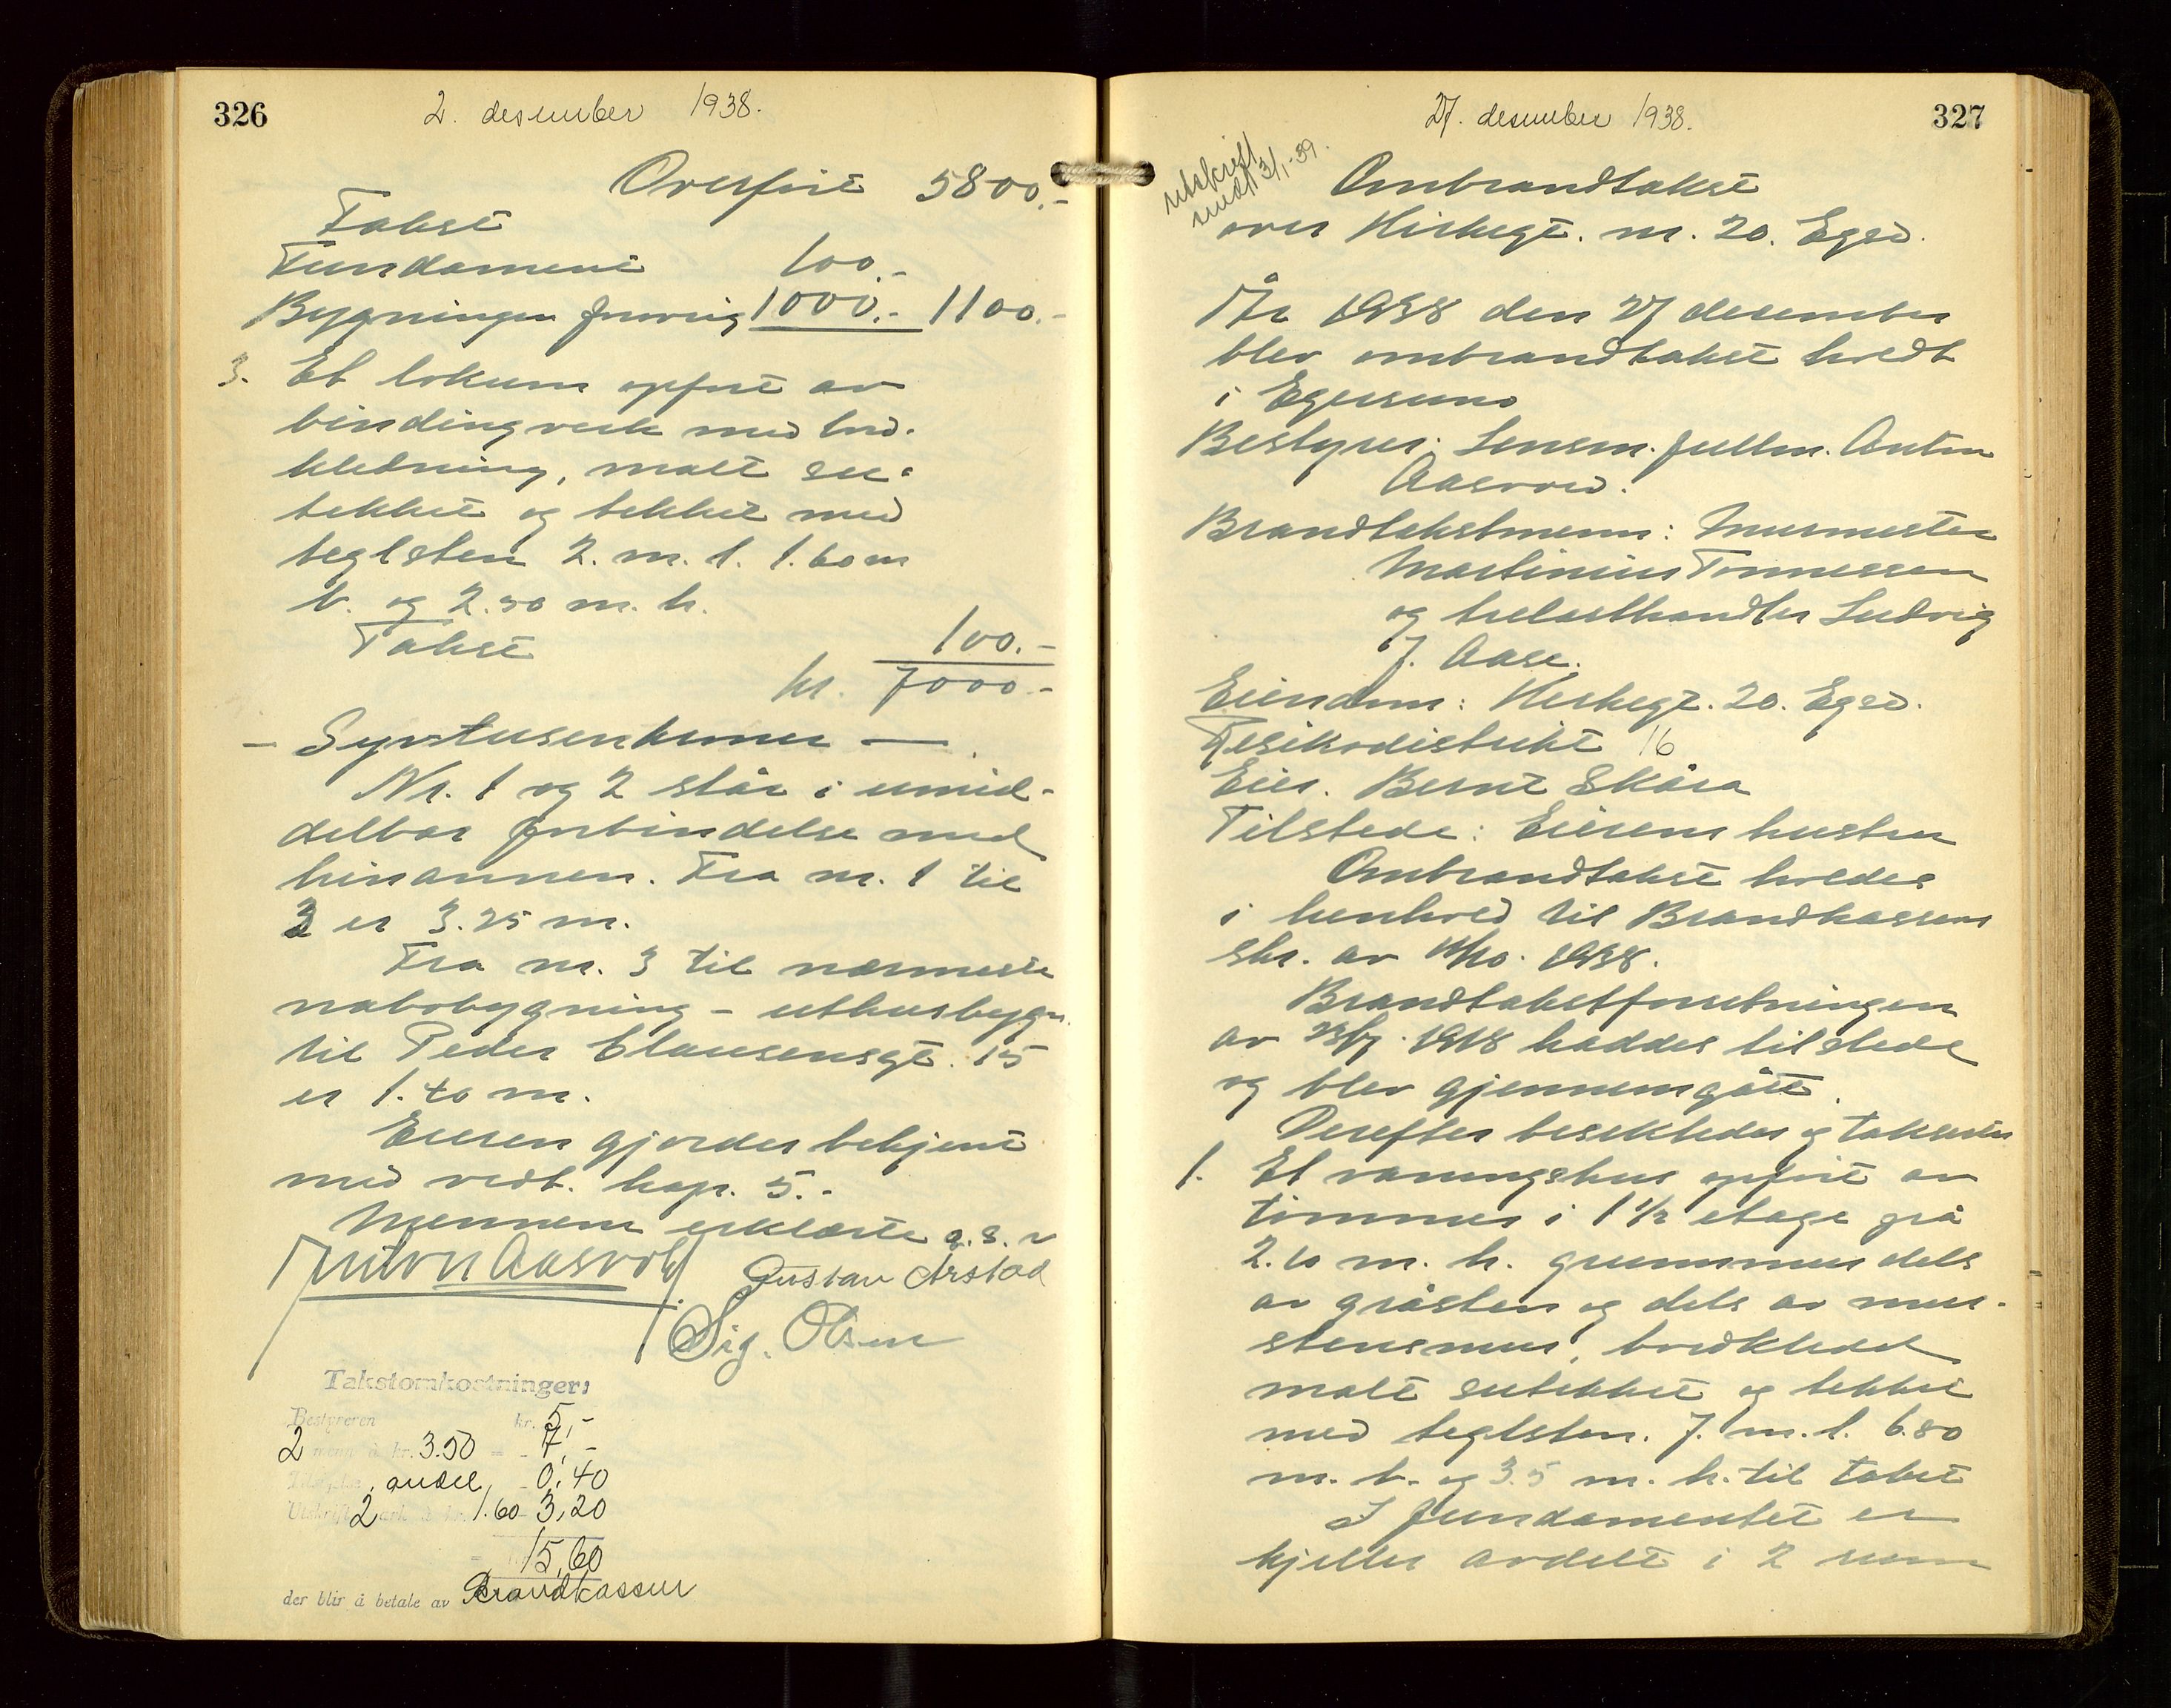 326
2. desember 1938.
Overført 5800.-
Takst
Fundament 100.-
Bygningen forøvrig 1000.- 1100.-
3. Et lokum opført av
bindingverk med bord-
kledning, malt su-
tekket og tekket med
teglsten 2. m. l. 1.60 m
b. og 2.50 m. h.
Takst 100.-
kr. 7000.-
- Syvtusenkroner -
Nr. 1 og 2 står i umid-
delbar forbindelse med
hinannen. Fra nr. 1 til
3 er 3.25 m.
Fra nr. 3 til nærmeste
nabobygning - uthusbygn.
til Peder Clausensgt. 15
er 1.40 m.
Eieren gjordes bekjent
med vedt. kap. 5.-
Mennene erklærte o.s.v
Anton Aasvold
Gustav Årstad
Sig. Olsen
Takstomkostninger:
Bestyreren kr. 5,-
2 menn à kr. 3.50 = - 7,-
andel 0,40
Utskrift 2 ark à kr. 1.60 3,20
= 15,60
der blir å betale av Brandkassen
327
27. desember 1938.
utskrift
sendt 3/1-39.
Ombrandtakst
over Hirkegt. nr. 20. Egsd.
År 1938 den 27 desember
blev ombrandtakst holdt
i Egersund
Bestyrer: Lensm. fullm. Anton
Aasvold.
Brandtakstmenn: Murmester
Martinius Tønnessen
og trelasthandler Ludvig
J. Aase.
Eiendom: Herkegt. 20. Egsd.
Risikodistrikt 16
Eier. Bernt Skåra
Tilstede: Eierens hustru
Ombrandtakst holdes
i henhold til Brandkassens
skr. av 1938.
Brandtakstforretningen
av 1918 haddes tilstede
og blev gjennemgått.
Derefter besiktedes og takseredes
1. Et våningshus opført av
tømmer i 1 1/2 etage på
2.10 m. h. grunnmur dels
av gråsten og dels av mur-
stensmur, bordkledd
malt sutekket og tekket
med teglsten. 7. m. l. 6.80
m. b. og 3.5 m. h. til taket
I fundamentet er
kjeller avdelt i 2 rum